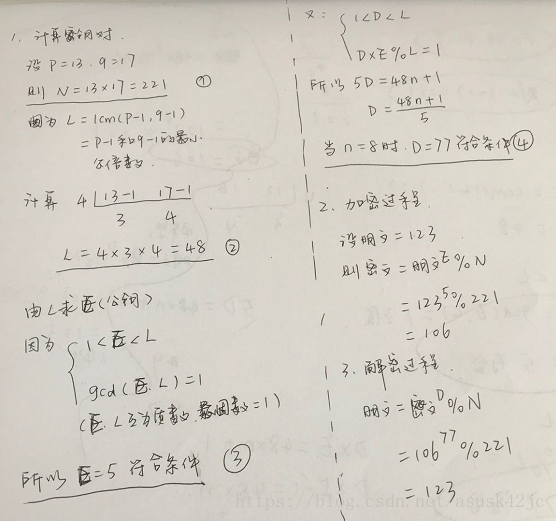 1. 计算密钥对.
设 P=13. q=17
则 N=13×17=221 ①
因为 L=lcm(P-1, q-1)
= P-1和q-1的最小
公倍数.
计算 4 13-1 17-1
3 4
L = 4×3×4=48 ②
由L求E(公钥)
因为 1<E<L
gcd(E. L)=1
(E. L互为质数. 公因数=1)
所以 E=5 符合条件 ③
又: 1<D<L
D×E%L=1
所以 5D=48n+1
D=48n+1/5
当 n=8时. D=77符合条件④
2. 加密过程.
设明文=123
则密文=明文^E%N
=123^5%221
=106
3. 解密过程.
明文=密文^D%N
=106^77%221
=123
https://blog.csdn.net/asusk42jc